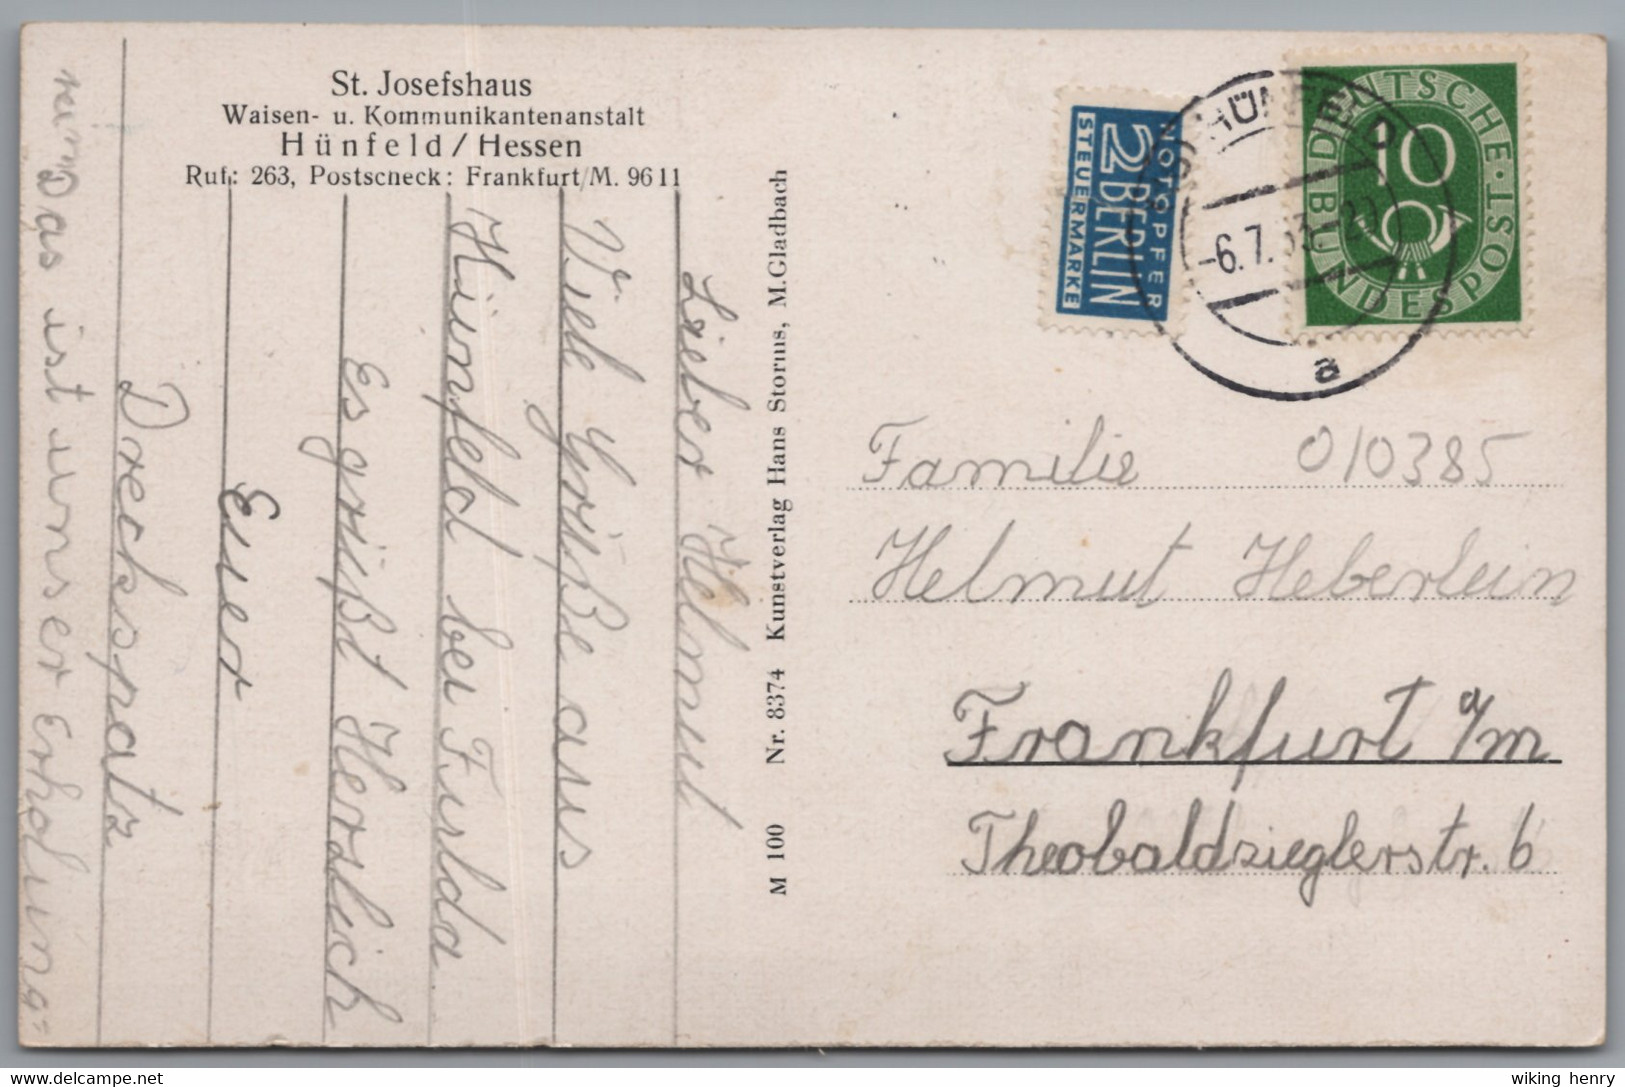 St. Josefshaus
Waisen- u. Kommunikantenanstalt
Hünfeld / Hessen
Ruf: 263, Postscheck: Frankfurt/M. 9611
Lieber Helmut
Viele Grüße aus
Hünfeld bei Fulda
Es grüßt Herzlich
Euer
Dreckspatz
Das ist unser Erholungs=
heim
Nr. 8374 Kunstverlag Hans Storms, M.Gladbach
M 100
NOTOPFER
2 BERLIN
STEUERMARKE
HÜNFELD
-6.7.53-20
a
DEUTSCHE BUNDESPOST
10
010385
Familie
Helmut Heberlein
Frankfurt a/m
Theobaldzieglerstr. 6
wiking henry
www.delcampe.net